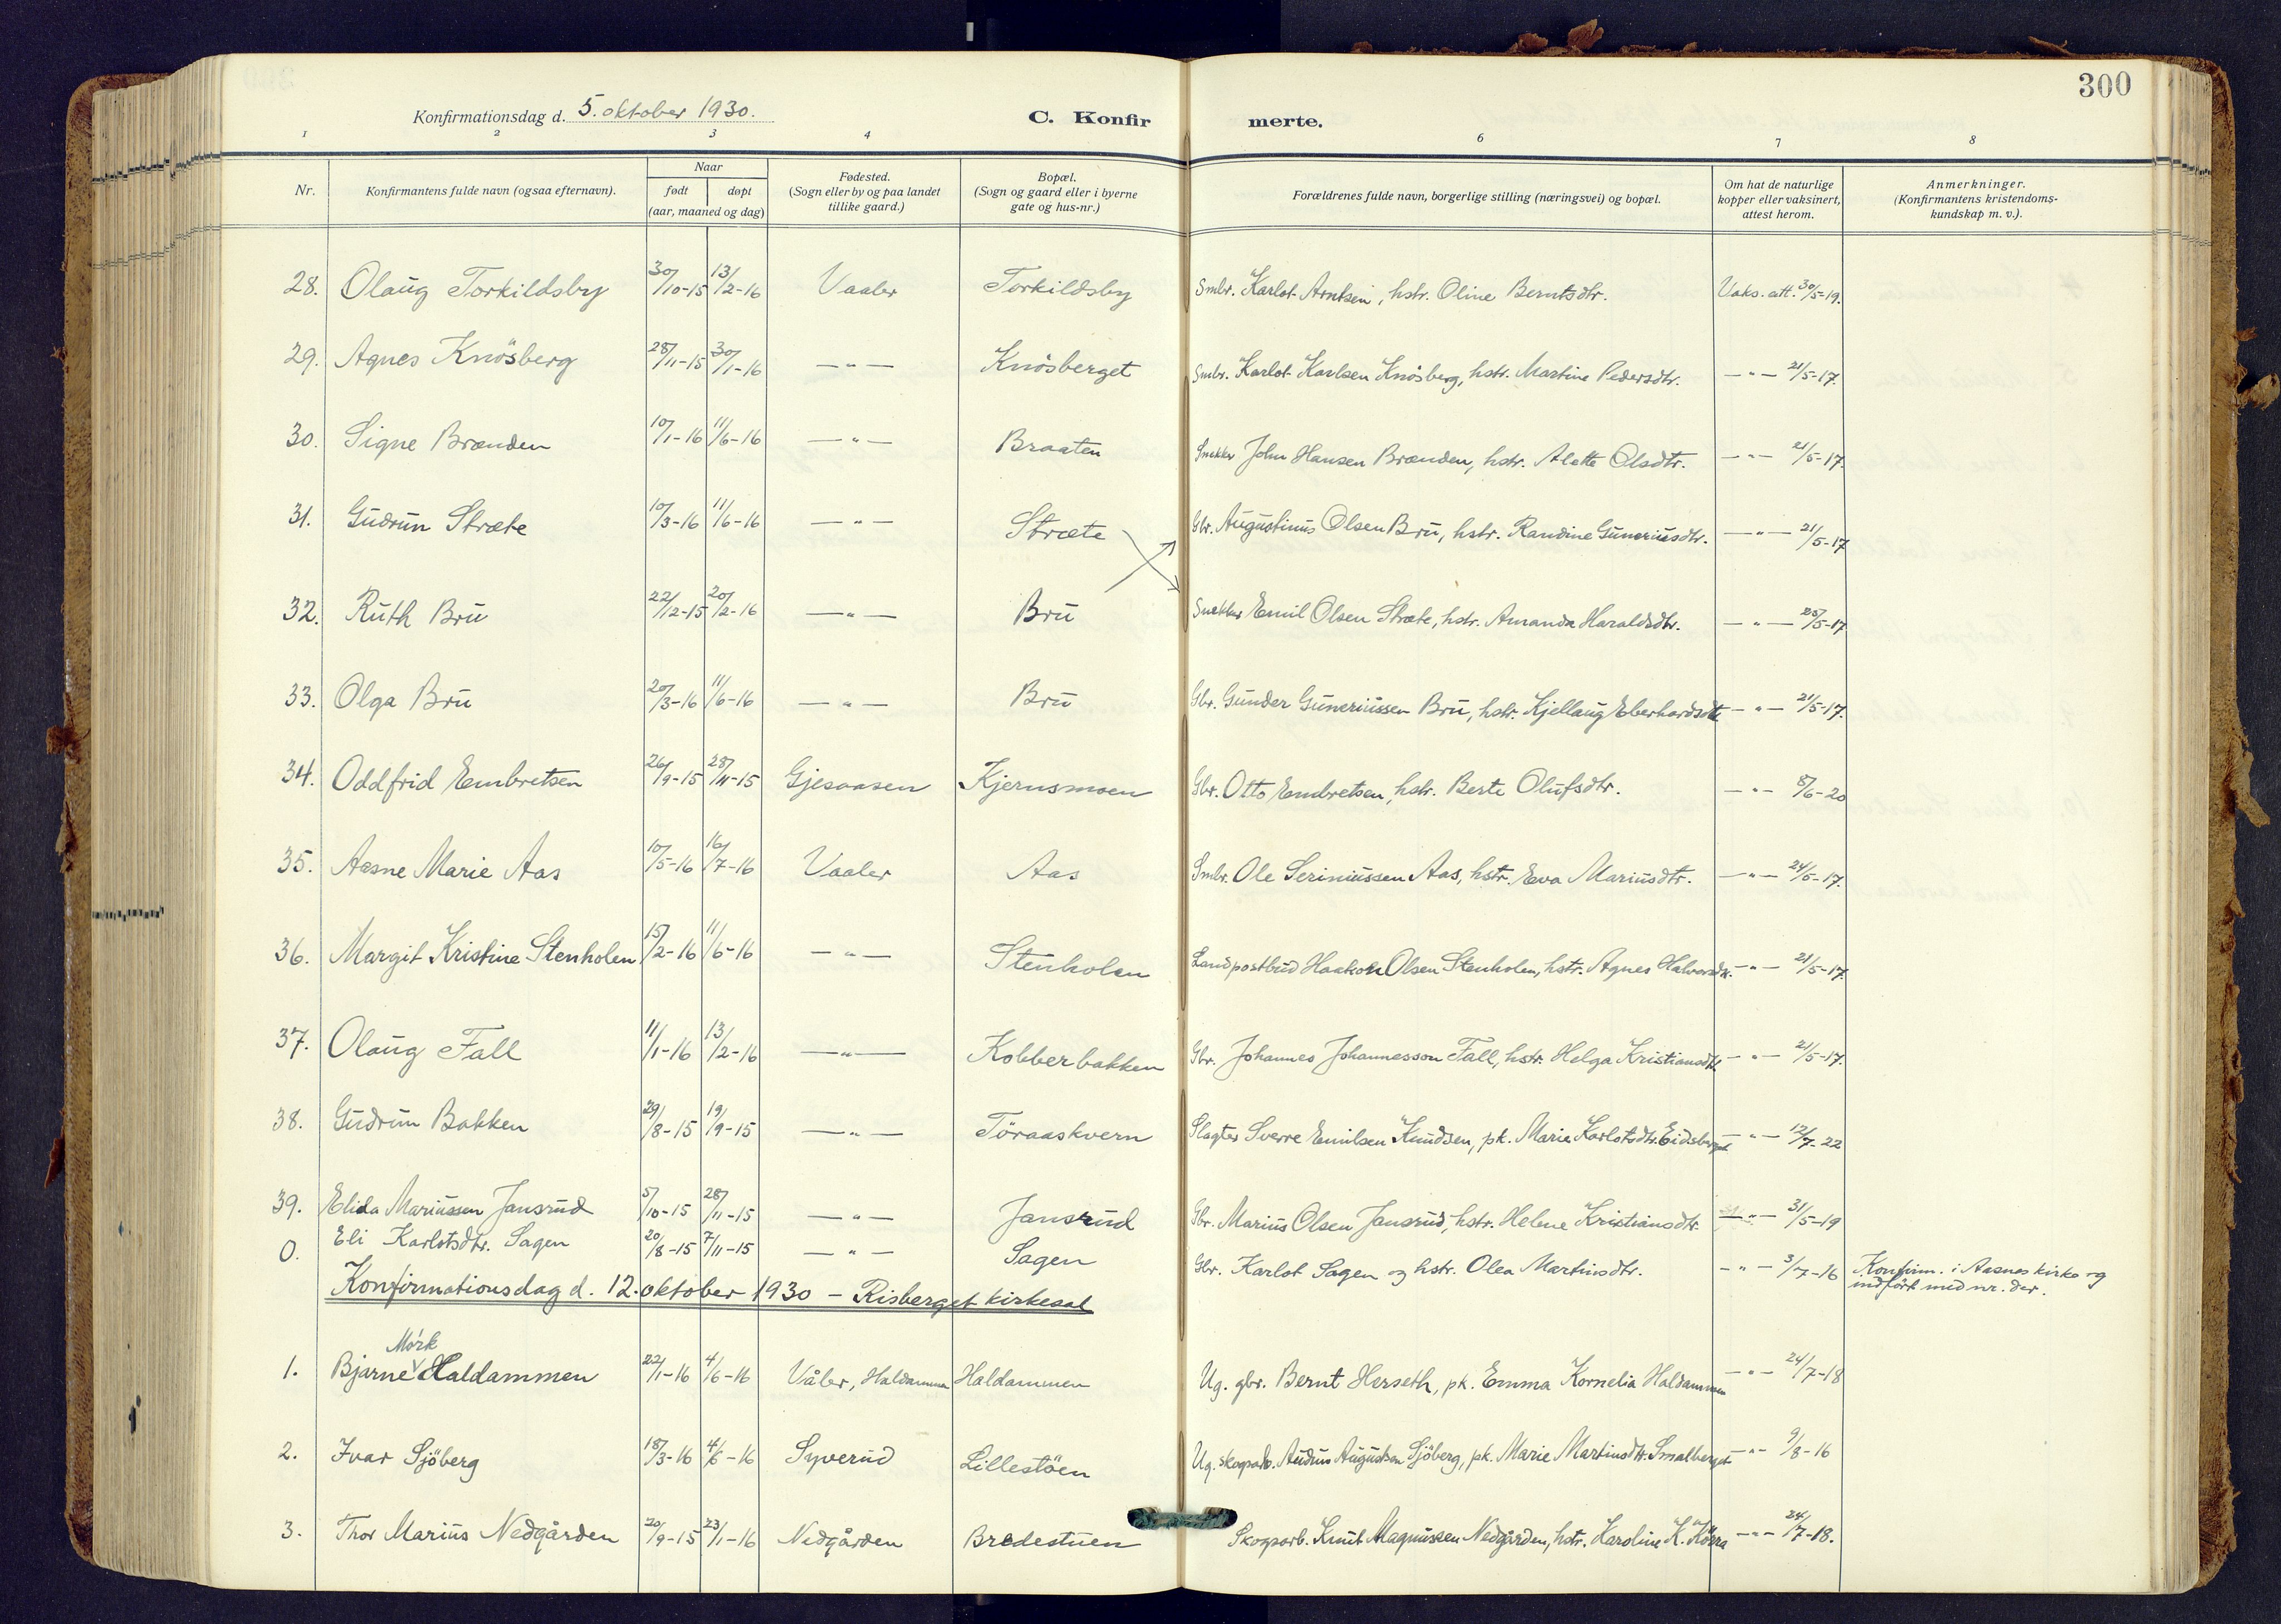 300
Konfirmationsdag d. 5. oktober 1930.
C. Konfirmerte.
1 2 3 4 6 7 8
Nr. Konfirmantens fulde navn (ogsaa efternavn). Naar født døpt (aar, maaned og dag) Fødested. (Sogn eller by og paa landet tillike gaard.) Bopæl. (Sogn og gaard eller i byerne gate og hus-nr.) Forældrenes fulde navn, borgerlige stilling (næringsvei) og bopæl. Om hat de naturlige kopper eller vaksinert, attest herom. Anmerkninger. (Konfirmantens kristendomskundskap m. v.).
28. Olaug Torkildsby 30/10-15 13/2-16 Vaaler Torkildsby Smbr. Karlot Arntsen, hstr. Oline Berntsdtr. Vaks. att. 30/5-19.
29. Agnes Knösberg 28/11-15 30/1-16 —"— Knösberget Smbr. Karlot Karlsen Knösberg, hstr. Martine Pedersdtr. —"— 21/5-17.
30. Signe Brænden 10/1-16 11/6-16 —"— Braaten Snekker John Hansen Brænden, hstr. Alette Olsdtr. —"— 21/5-17.
31. Gudrun Stræte 10/3-16 11/6-16 —"— Stræte Gbr. Augustinus Olsen Bru, hstr. Randine Guneriusdtr. —"— 21/5-17
32. Ruth Bru 22/12-15 20/2-16 —"— Bru Snekker Emil Olsen Stræte, hstr. Amanda Haraldsdtr. —"— 25/5-17
33. Olga Bru 20/3-16 11/6-16 —"— Bru Gbr. Gunder Guneriussen Bru, hstr. Kjellaug Eberhardsdtr. —"— 21/5-17.
34. Oddfrid Embretsen 26/9-15 28/11-15 Gjesaasen Kjernsmoen Gbr. Otto Embretsen, hstr. Berte Olufsdtr. —"— 8/6-20
35. Aasne Marie Aas 10/5-16 16/7-16 Vaaler Aas Smbr. Ole Seriniussen Aas, hstr. Eva Mariusdtr. —"— 24/5-17.
36. Margit Kristine Stenholen 15/2-16 11/6-16 —"— Stenholen Landpostbud Haakon Olsen Stenholen, hstr. Agnes Halvorsdtr. —"— 21/5-17.
37. Olaug Fall 11/1-16 13/2-16 —"— Kobberbakken Gbr. Johannes Johannesson Fall, hstr. Helga Kristiansdtr. —"— 21/5-17.
38. Gudrun Bakken 29/8-15 19/9-15 —"— Töraaskvern Slagter Sverre Emilsen Knudsen, pk. Marie Karlotsdtr. Eidsberget —"— 12/7-22
39. Elida Mariussen Jansrud 5/10-15 28/11-15 —"— Jansrud Gbr. Marius Olsen Jansrud, hstr. Helene Kristiansdtr. —"— 31/5-19
0. Eli Karlotsdtr. Sagen 20/8-15 7/11-15 —"— Sagen Gbr. Karlot Sagen og hstr. Olea Martinsdtr. —"— 3/7-16 Konfirm. i Aasnes kirke og indført med nr. der.
Konfirmationsdag d. 12. oktober 1930 — Risberget kirkesal
1. Bjarne Mörk Haldammen 22/1-16 4/6-16 Våler, Haldammen Haldammen Ug. gbr. Bernt Herseth, pk. Emma Kornelia Haldammen —"— 24/7-18
2. Ivar Sjöberg 18/3-16 4/6-16 Syverud Lillestöen Ug. skogsarb. Audun Augustson Sjöberg, pk. Marie Martinsdtr. Smalberget —"— 9/8-16
3. Thor Marius Nedgården 20/9-15 23/1-16 Nedgården Bredestuen Skogsarb. Knut Magnussen Nedgården, hstr. Karoline K. Körra —"— 24/7-18.